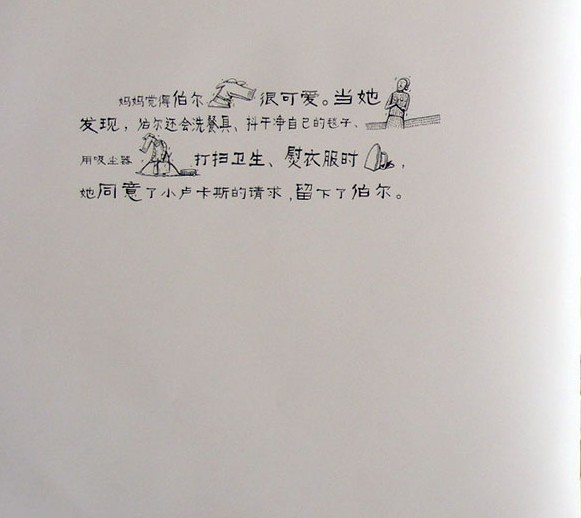 妈妈觉得伯尔很可爱。当她
发现，伯尔还会洗餐具、抖干净自己的毯子、
用吸尘器打扫卫生、熨衣服时，
她同意了小卢卡斯的请求，留下了伯尔。